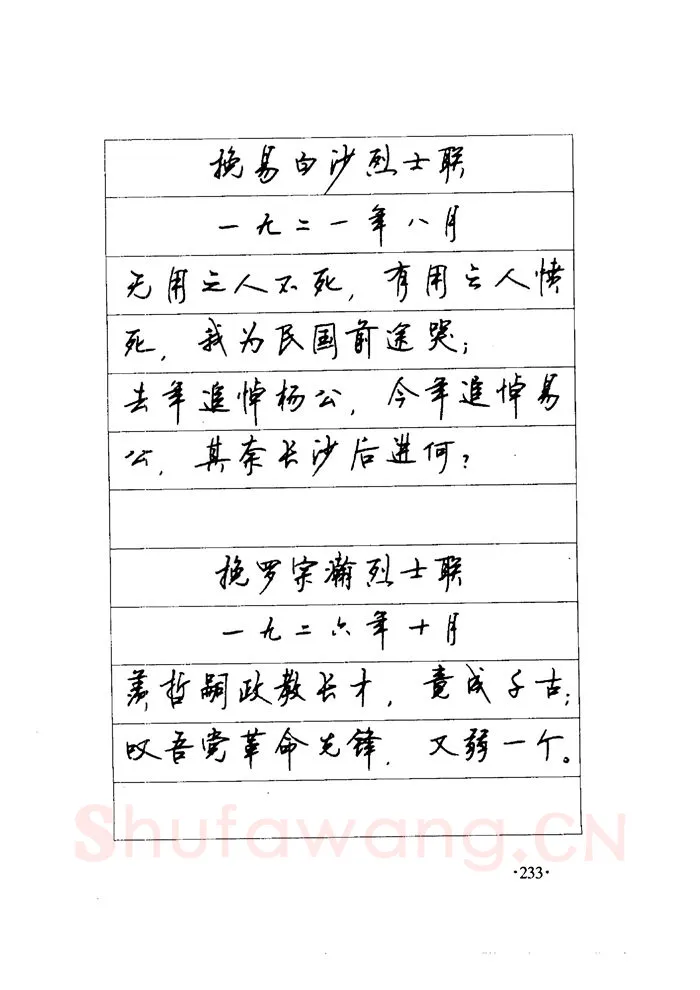 挽易白沙烈士联
一九二一年八月
无用之人不死，有用之人愤
死，我为民国前途哭；
去年追悼杨公，今年追悼易
公，其奈长沙后进何？
挽罗宗瀚烈士联
一九二六年十月
羡哲嗣政教长才，竟成千古；
叹吾党革命先锋，又弱一个。
Shufawang.CN
·233·